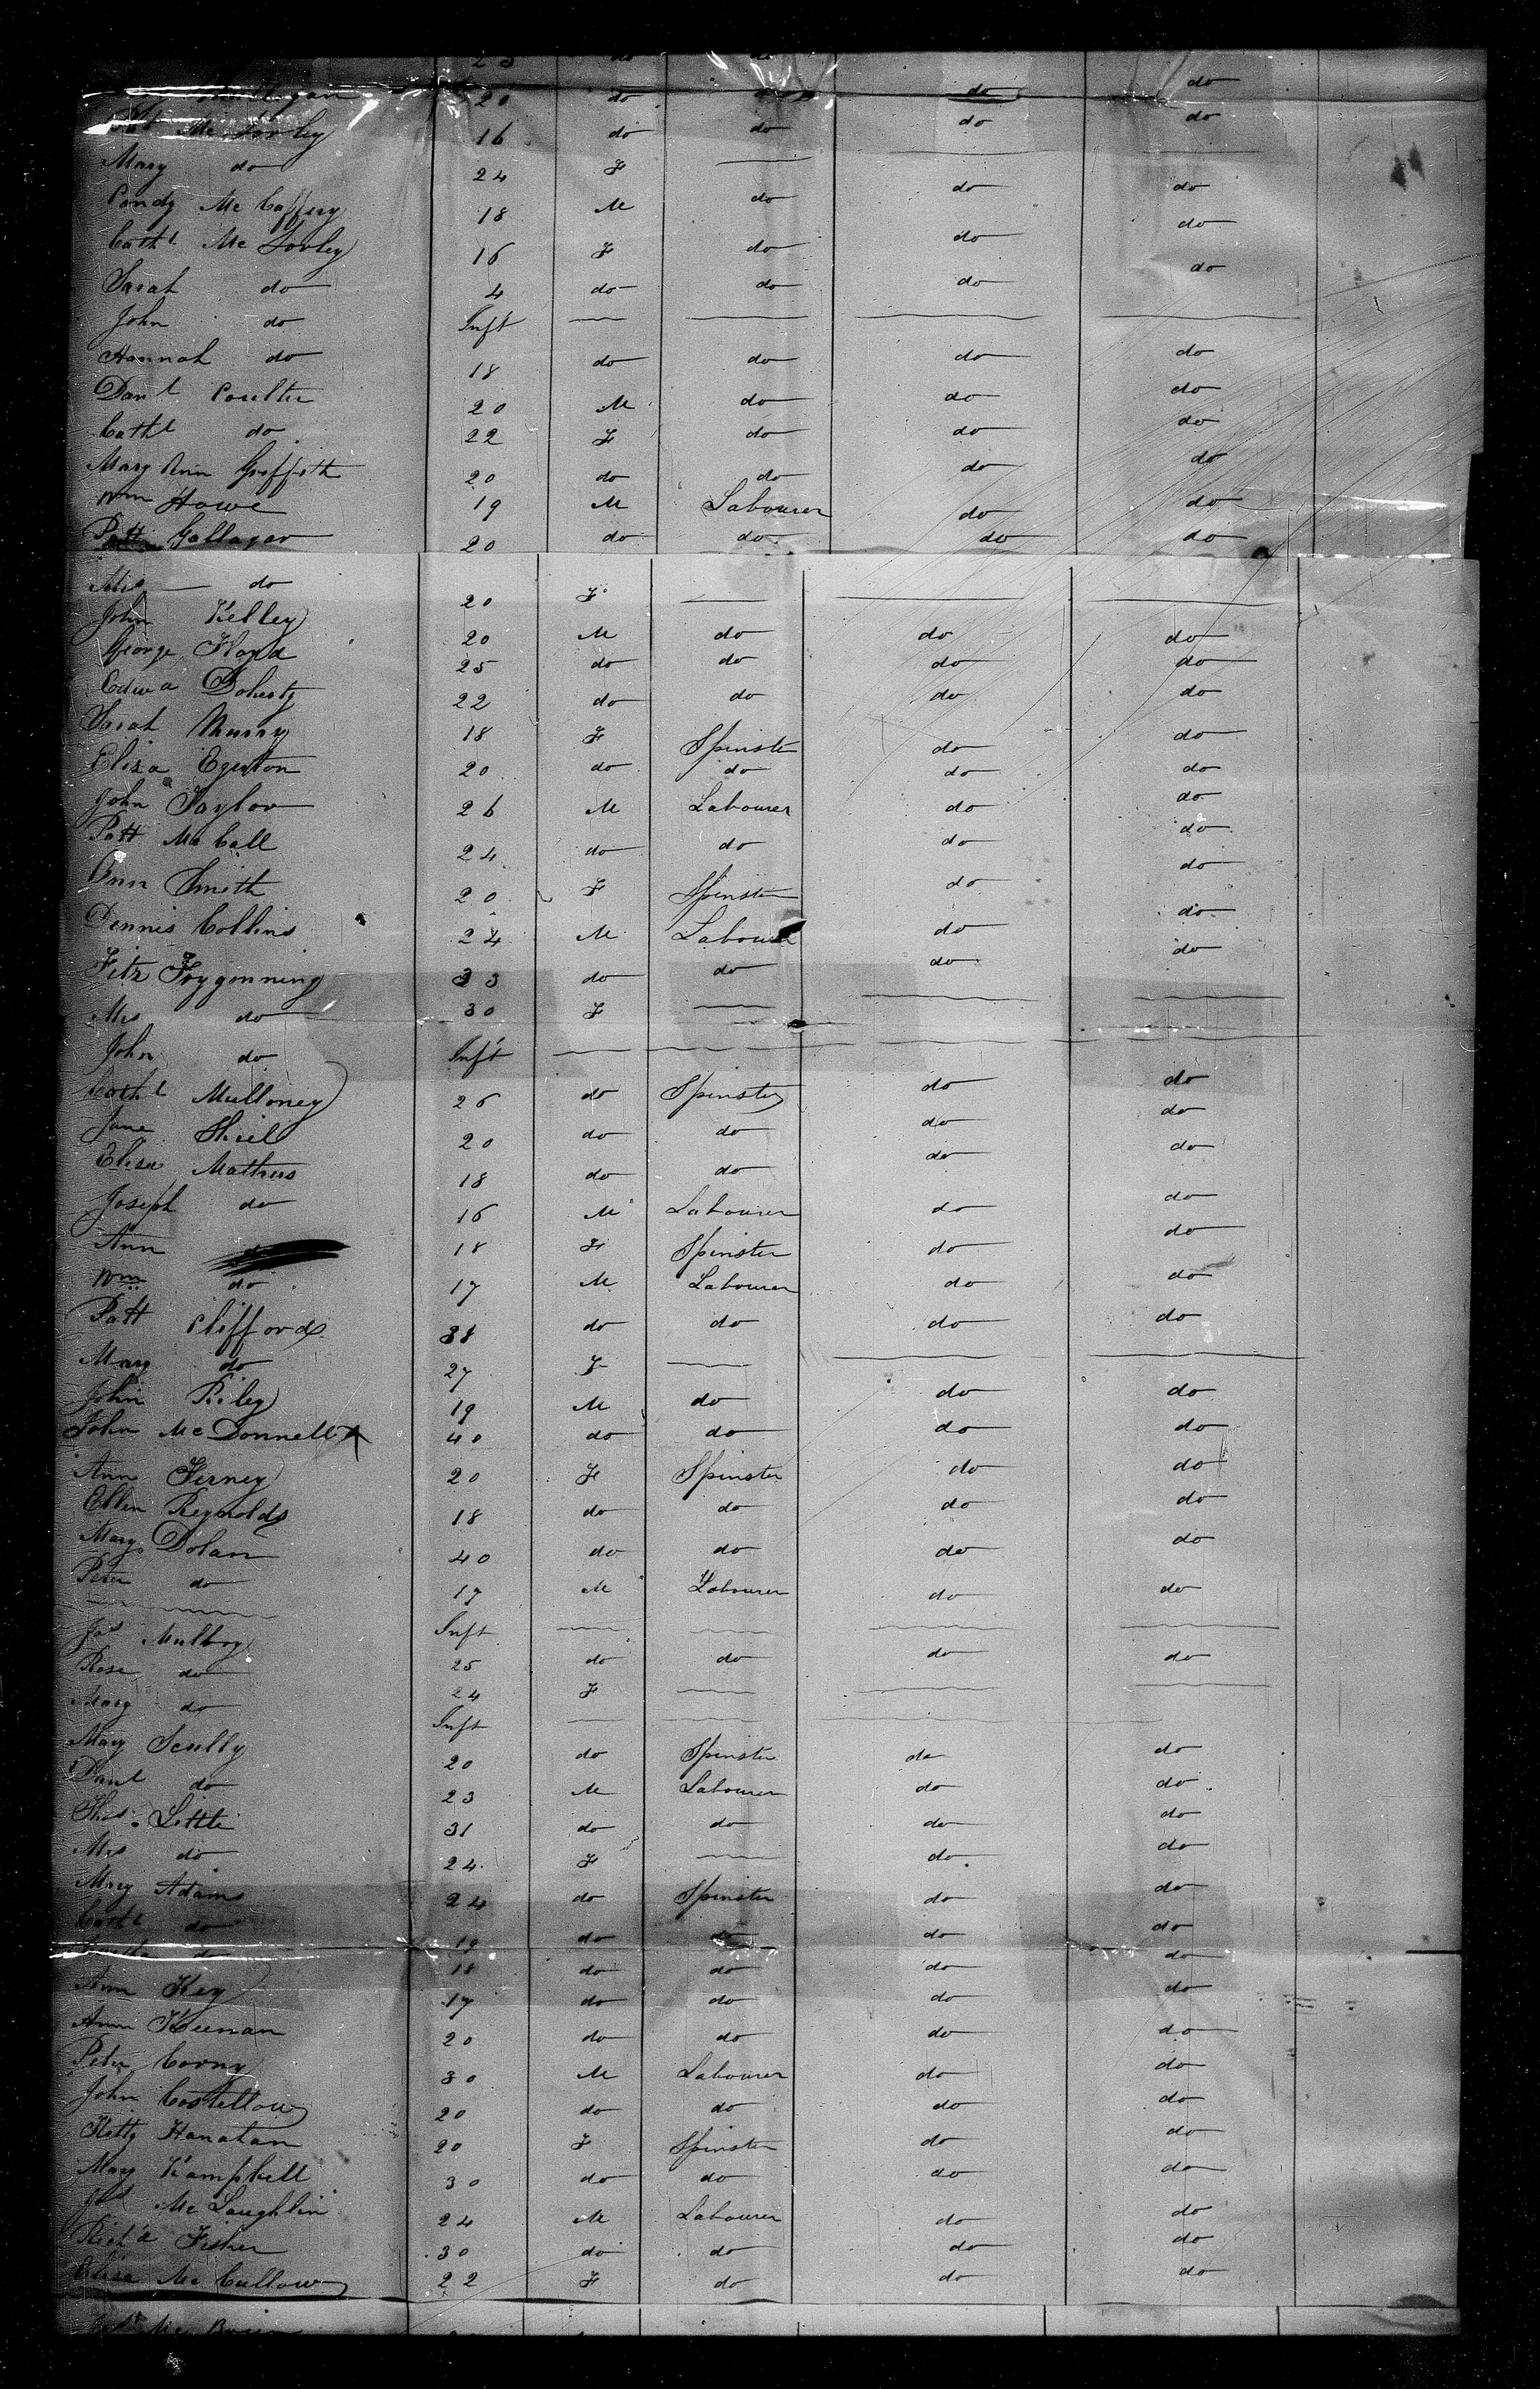 23 do do
20 do do do do
Mc Sorley 16 do do do do
Mary do 24 F
Condy Mc Caffery 18 M do do do
Cathe Mc Sorley 16 F do do do
Sarah do 4 do do do do
John do Inft
Hannah do 18 do do do do
Danl Coulter 20 M do do do
Cathe do 22 F do do do
Mary Ann Griffith 20 do do do do
Wm Howe 19 M Labourer do do
Patt Gallagar 20 do do do do
Mrs do 20 F
John Kelley 20 M do do do
George Floyd 25 do do do do
Edwd Doherty 22 do do do do
Sarah Murry 18 F Spinster do do
Eliza Egerton 20 do do do do
John Taylor 26 M Labourer do do
Patt Mc Call 24 do do do do
Ann Smith 20 F Spinster do do
Dennis Collins 24 M Labourer do do
Fitz Foygonning 33 do do do do
Mrs do 30 F
John do Inft
Cathe Mulloney 26 do Spinster do do
Jane Shiel 20 do do do do
Eliza Mathews 18 do do do do
Joseph do 16 M Labourer do do
Ann do 18 F Spinster do do
Wm do 17 M Labourer do do
Patt Clifford 38 do do do do
Mary do 27 F
John Riley 19 M do do do
John Mc Donnell 40 do do do do
Ann Ferney 20 F Spinster do do
Ellen Reynolds 18 do do do do
Mary Dolan 40 do do do do
Peter do 17 M Labourer do do
Inft
Jas Mulbry 25 do do do do
Rose do 24 F
Mary do Inft
Mary Scully 20 do Spinster do do
Danl do 23 M Labourer do do
Thos Little 31 do do do do
Mrs do 24 F do do
Mary Adams 24 do Spinster do do
Cathe do 19 do do do do
do 18 do do do do
Ann Key 17 do do do do
Ann Keenan 20 do do do do
Peter Corny 30 M Labourer do do
John Costellow 20 do do do do
Kitty Hanatan 20 F Spinster do do
Mary Kampbell 30 do do do do
Jas Mc Laughlin 24 M Labourer do do
Richd Fisher 30 do do do do
Eliza Mc Cullow 22 F do do do
Mc